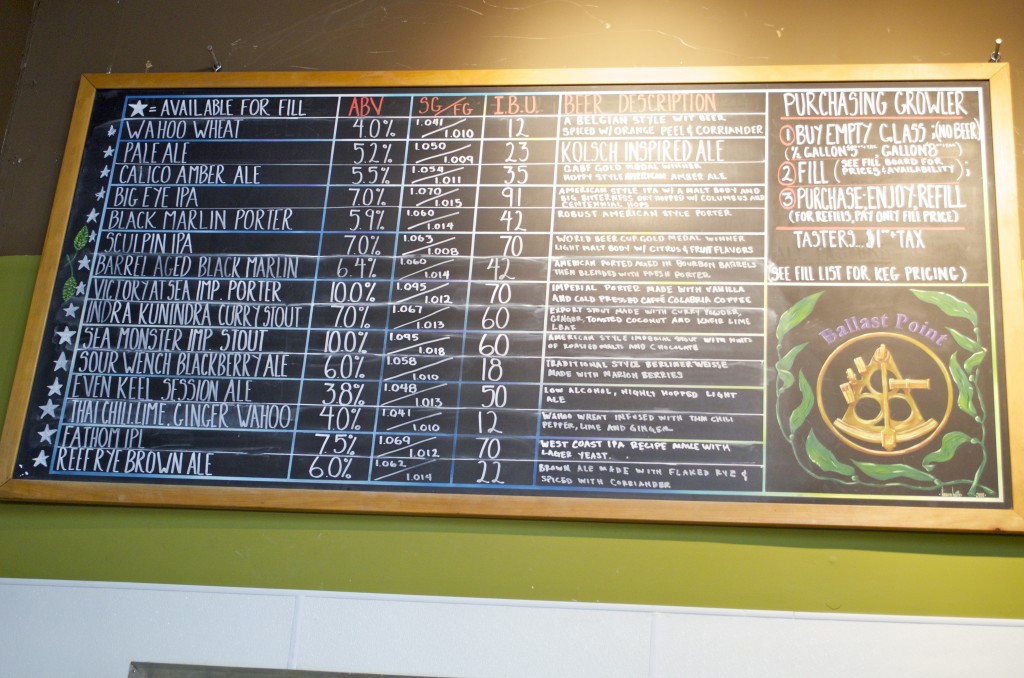 ★ = AVAILABLE FOR FILL ABV SG/FG I.B.U. BEER DESCRIPTION
WAHOO WHEAT 4.0% 1.041/1.010 12 A BELGIAN STYLE WIT BEER
SPICED W/ORANGE PEEL & CORRIANDER
PALE ALE 5.2% 1.050/1.009 23 KOLSCH INSPIRED ALE
CALICO AMBER ALE 5.5% 1.054/1.011 35 GABF GOLD MEDAL WINNER
HOPPY STYLE AMERICAN AMBER ALE
BIG EYE IPA 7.0% 1.070/1.015 91 AMERICAN STYLE IPA W/A MALT BODY AND
BIG BITTERNESS DRY HOPPED W/COLUMBUS AND
CENTENNIAL HOPS
BLACK MARLIN PORTER 5.9% 1.060/1.014 42 ROBUST AMERICAN STYLE PORTER
SCULPIN IPA 7.0% 1.063/1.008 70 WORLD BEER CUP GOLD MEDAL WINNER
LIGHT MALT BODY W/ CITRUS & FRUIT FLAVORS
BARREL AGED BLACK MARLIN 6.4% 1.060/1.014 42 AMERICAN PORTER AGED IN BOURBON BARRELS
THEN BLENDED WITH FRESH PORTER.
VICTORY AT SEA IMP. PORTER 10.0% 1.095/1.012 70 IMPERIAL PORTER MADE WITH VANILLA
AND COLD PRESSED CAFFÉ CALABRIA COFFEE
INDRA KUNINDRA CURRY STOUT 7.0% 1.067/1.013 60 EXPORT STOUT MADE WITH CURRY POWDER,
GINGER, TOASTED COCONUT AND KAFIR LIME
LEAF
SEA MONSTER IMP. STOUT 10.0% 1.095/1.018 60 AMERICAN STYLE IMPERIAL STOUT WITH HINTS
OF ROASTED MALTS AND CHOCOLATE
SOUR WENCH BLACKBERRY ALE 6.0% 1.058/1.010 18 TRADITIONAL STYLE BERLINER WEISSE
MADE WITH MARION BERRIES
EVEN KEEL SESSION ALE 3.8% 1.048/1.013 50 LOW ALCOHOL, HIGHLY HOPPED LIGHT
ALE
THAI CHILI, LIME, GINGER WAHOO 4.0% 1.041/1.010 12 WAHOO WHEAT INFUSED WITH THAI CHILI
PEPPER, LIME AND GINGER
FATHOM IPL 7.5% 1.069/1.012 70 WEST COAST IPA RECIPE MADE WITH
LAGER YEAST.
REEF RYE BROWN ALE 6.0% 1.062/1.014 22 BROWN ALE MADE WITH FLAKED RYE &
SPICED WITH CORRIANDER
PURCHASING GROWLER
1 BUY EMPTY GLASS; (NO BEER)
(½ GALLON 5 GALLON 8)
2 FILL (SEE FILL BOARD FOR
PRICES & AVAILABILITY);
3 PURCHASE; ENJOY; REFILL
(FOR REFILLS, PAY ONLY FILL PRICE)
TASTERS... $1 + TAX
(SEE FILL LIST FOR KEG PRICING)
Ballast Point